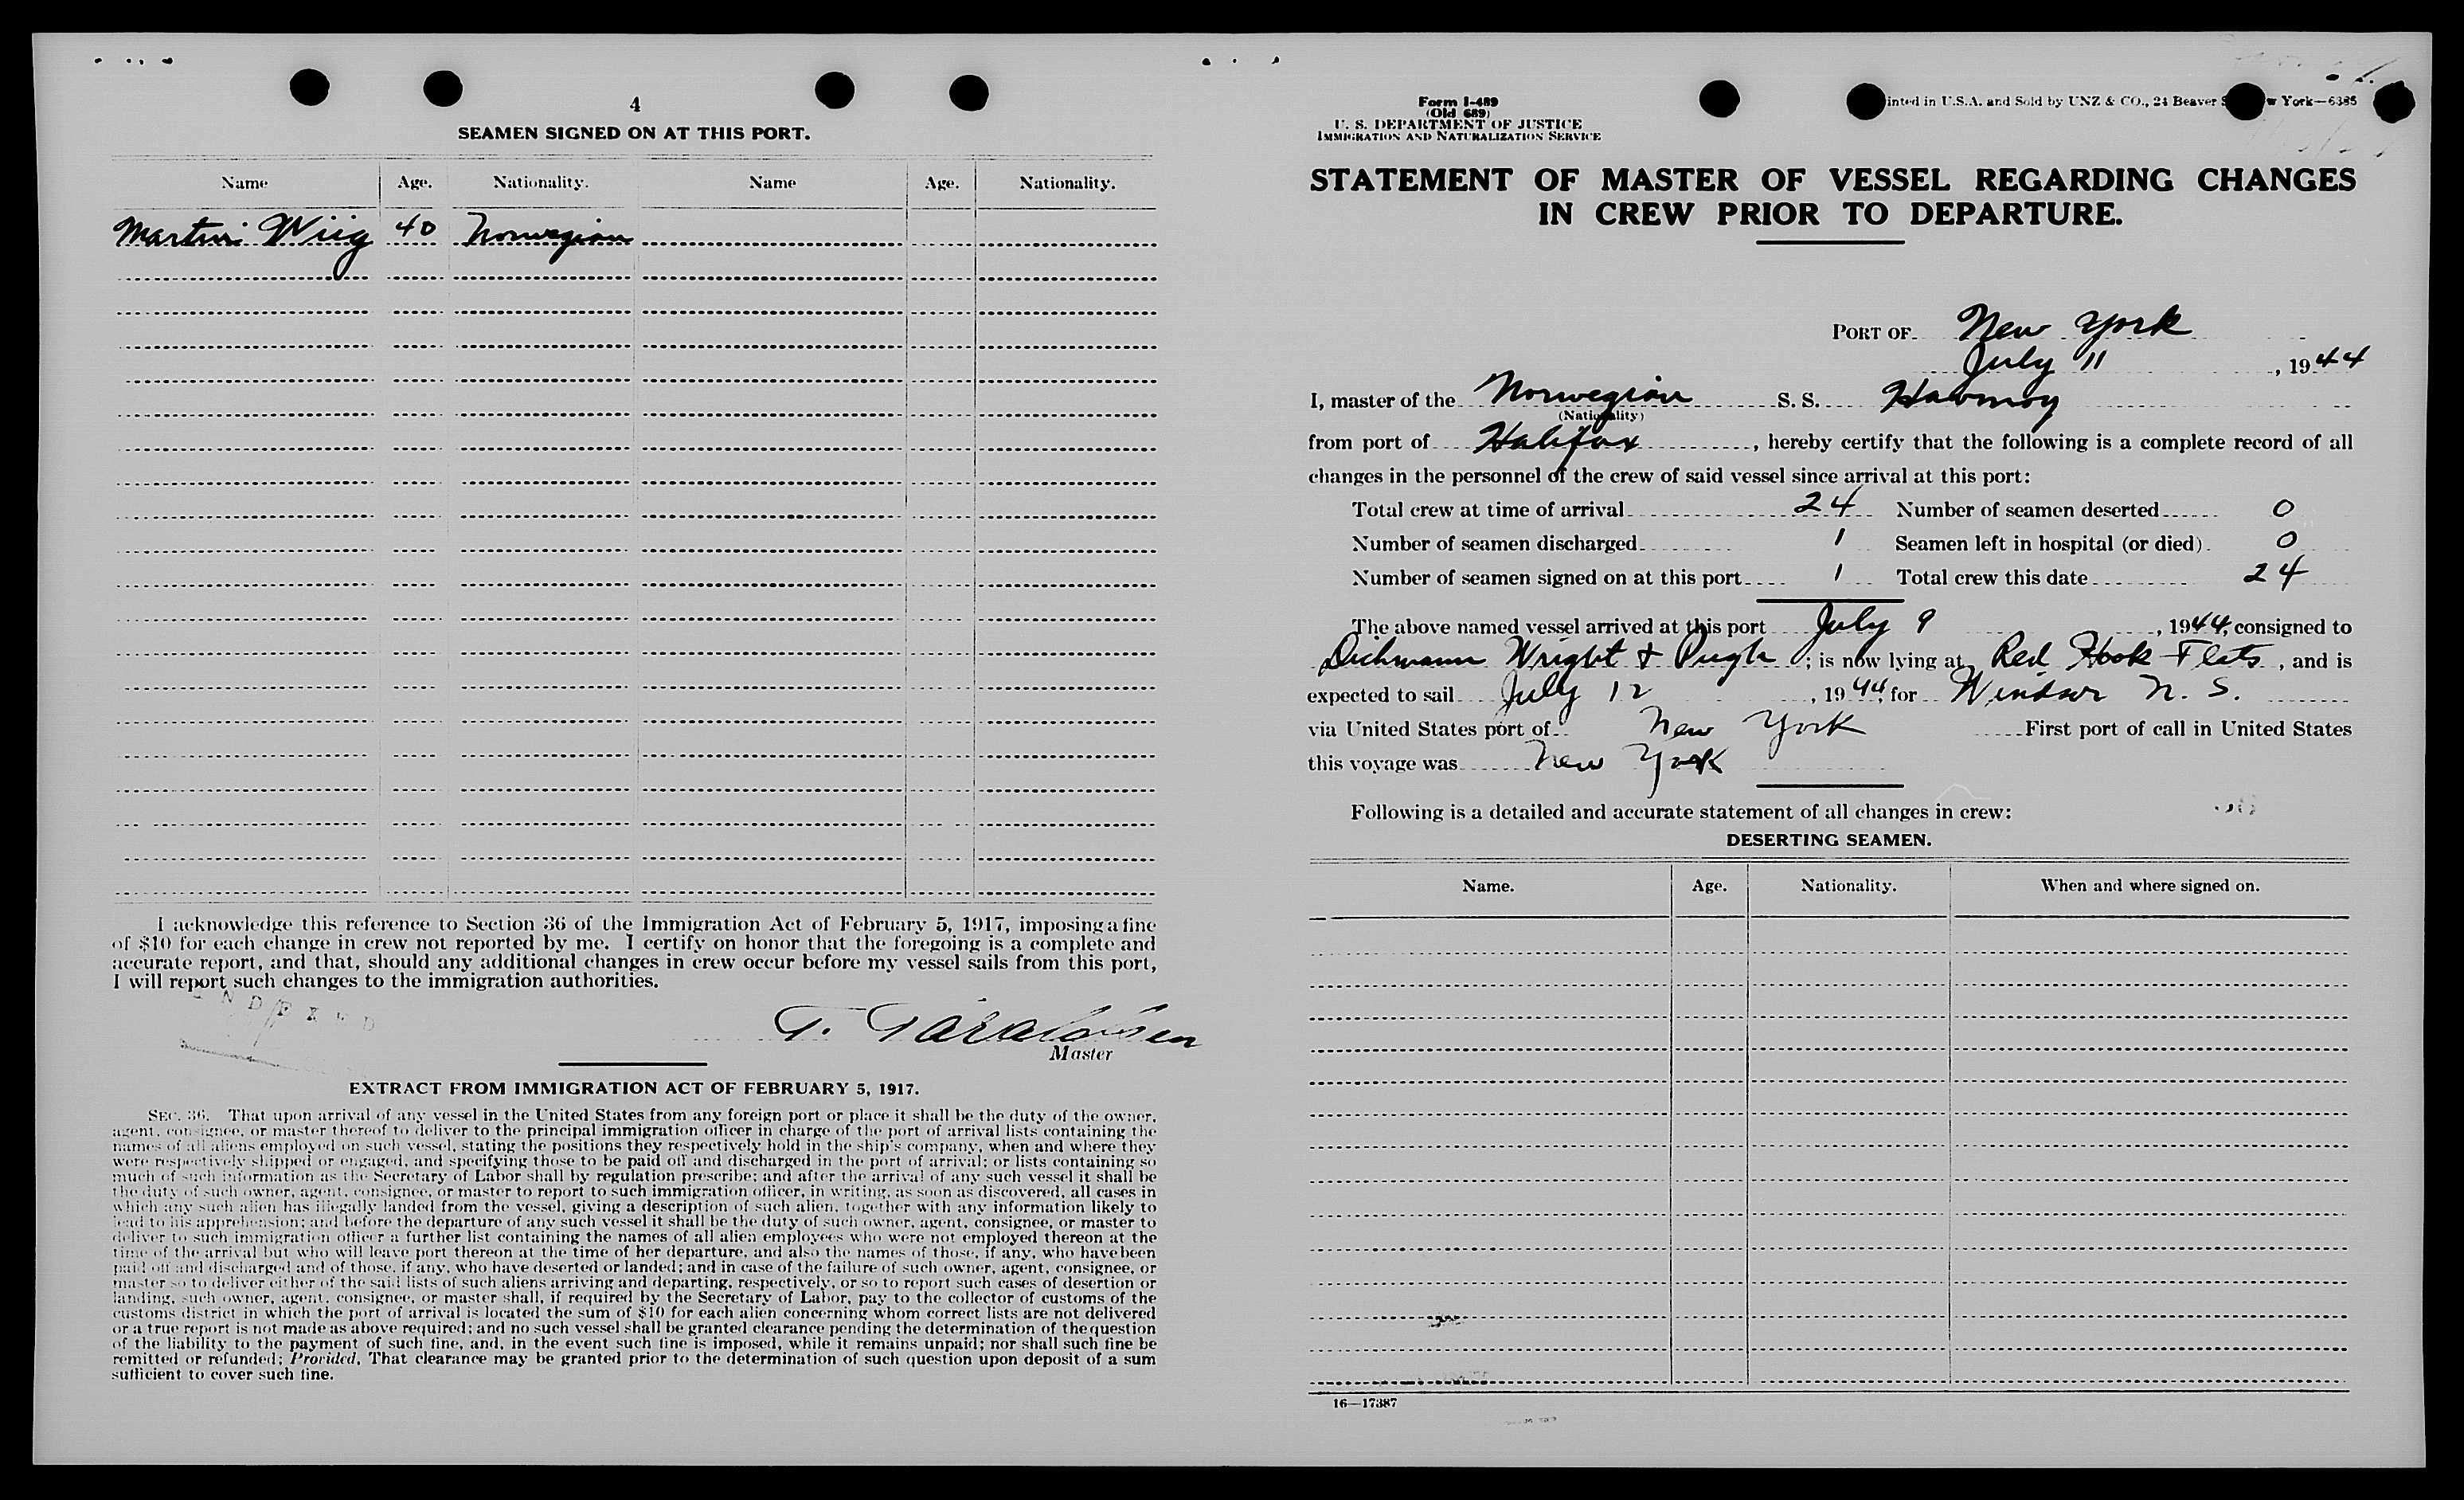 4
SEAMEN SIGNED ON AT THIS PORT.
Name Age. Nationality. Name Age. Nationality.
Martin Wiig 40 Norwegian
I acknowledge this reference to Section 36 of the Immigration Act of February 5, 1917, imposing a fine
of $10 for each change in crew not reported by me. I certify on honor that the foregoing is a complete and
accurate report, and that, should any additional changes in crew occur before my vessel sails from this port,
I will report such changes to the immigration authorities.
INDEXED
Master
EXTRACT FROM IMMIGRATION ACT OF FEBRUARY 5, 1917.
SEC. 36. That upon arrival of any vessel in the United States from any foreign port or place it shall be the duty of the owner,
agent, consignee, or master thereof to deliver to the principal immigration officer in charge of the port of arrival lists containing the
names of all aliens employed on such vessel, stating the positions they respectively hold in the ship's company, when and where they
were respectively shipped or engaged, and specifying those to be paid off and discharged in the port of arrival; or lists containing so
much of such information as the Secretary of Labor shall by regulation prescribe; and after the arrival of any such vessel it shall be
the duty of such owner, agent, consignee, or master to report to such immigration officer, in writing, as soon as discovered, all cases in
which any such alien has illegally landed from the vessel, giving a description of such alien, together with any information likely to
lead to his apprehension; and before the departure of any such vessel it shall be the duty of such owner, agent, consignee, or master to
deliver to such immigration officer a further list containing the names of all alien employees who were not employed thereon at the
time of the arrival but who will leave port thereon at the time of her departure, and also the names of those, if any, who have been
paid off and discharged and of those, if any, who have deserted or landed; and in case of the failure of such owner, agent, consignee, or
master so to deliver either of the said lists of such aliens arriving and departing, respectively, or so to report such cases of desertion or
landing, such owner, agent, consignee, or master shall, if required by the Secretary of Labor, pay to the collector of customs of the
customs district in which the port of arrival is located the sum of $10 for each alien concerning whom correct lists are not delivered
or a true report is not made as above required; and no such vessel shall be granted clearance pending the determination of the question
of the liability to the payment of such fine, and, in the event such fine is imposed, while it remains unpaid; nor shall such fine be
remitted or refunded; Provided, That clearance may be granted prior to the determination of such question upon deposit of a sum
sufficient to cover such fine.
Form I-489
(Old 689)
U. S. DEPARTMENT OF JUSTICE
IMMIGRATION AND NATURALIZATION SERVICE
inted in U.S.A. and Sold by UNZ & CO., 24 Beaver S w York—6385
STATEMENT OF MASTER OF VESSEL REGARDING CHANGES
IN CREW PRIOR TO DEPARTURE.
PORT OF New York
July 11, 1944
I, master of the Norwegian S. S. Havmoy
(Nationality)
from port of Halifax, hereby certify that the following is a complete record of all
changes in the personnel of the crew of said vessel since arrival at this port:
Total crew at time of arrival 24 Number of seamen deserted 0
Number of seamen discharged 1 Seamen left in hospital (or died) 0
Number of seamen signed on at this port 1 Total crew this date 24
The above named vessel arrived at this port July 9, 1944, consigned to
Dichmann Wright & Pugh; is now lying at Red Hook Flats, and is
expected to sail July 12, 1944, for Windsor N. S.
via United States port of New York First port of call in United States
this voyage was New York
Following is a detailed and accurate statement of all changes in crew:
DESERTING SEAMEN.
Name. Age. Nationality. When and where signed on.
16—17387